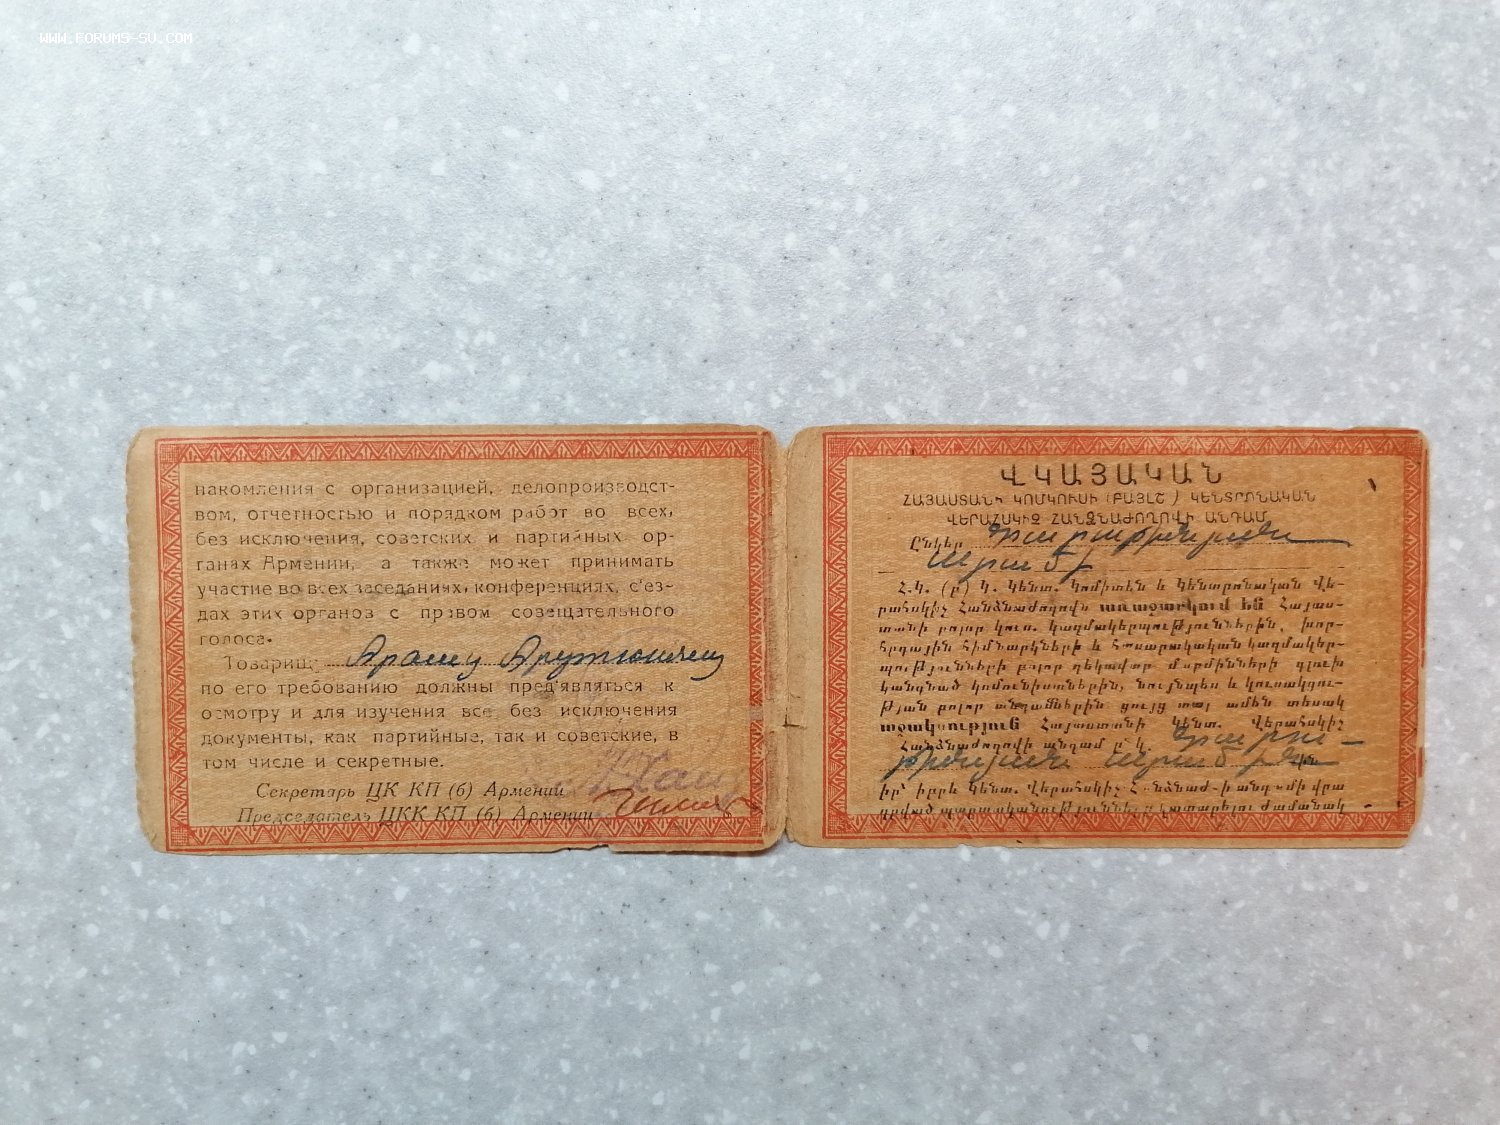 WWW.FORUMS-SU.COM
накомления с организацией, делопроизводст-
вом, отчетностью и порядком работ во всех,
без исключения, советских и партийных ор-
ганах Армении, а также может принимать
участие во всех заседаниях, конференциях, с'ез-
дах этих органов с правом совещательного
голоса.
Товарищу
по его требованию должны пред'являться к
осмотру и для изучения все, без исключения
документы, как партийные, так и советские, в
том числе и секретные.
Секретарь ЦК КП (б) Армении
Председатель ЦКК КП (б) Армении
ՎԿԱՅԱԿԱՆ
ՀԱՅԱՍՏԱՆԻ ԿՈՄԿՈՒՍԻ (ԲԱՅԼՇ) ԿԵՆՏՐՈՆԱԿԱՆ
ՎԵՐԱՀՍԿԻՉ ՀԱՆՁՆԱԺՈՂՈՎԻ ԱՆԴԱՄ
Ընկեր
Հ.Կ. (բ) Կ. Կենտ. Կոմիտեն և Կենտրոնական Վե-
րահսկիչ Հանձնաժողովն առաջարկում են Հայաս-
տանի բոլոր կուս. կազմակերպություններին, խոր-
հրդային հիմնարկների և հասարակական կազմակեր-
պությունների բոլոր ղեկավար մարմինների գլուխ
կանգնած կոմունիստներին, նույնպես և կուսակցու-
թյան բոլոր անդամներին ցույց տալ ամեն տեսակ
աջակցություն Հայաստանի Կենտ. Վերահսկիչ
Հանձնաժողովի անդամ ընկ.
իր՝ իբրև Կենտ. Վերահսկիչ Հանձնաժ-ի անդամի վրա
դրված պարտականությունները կատարելու ժամանակ